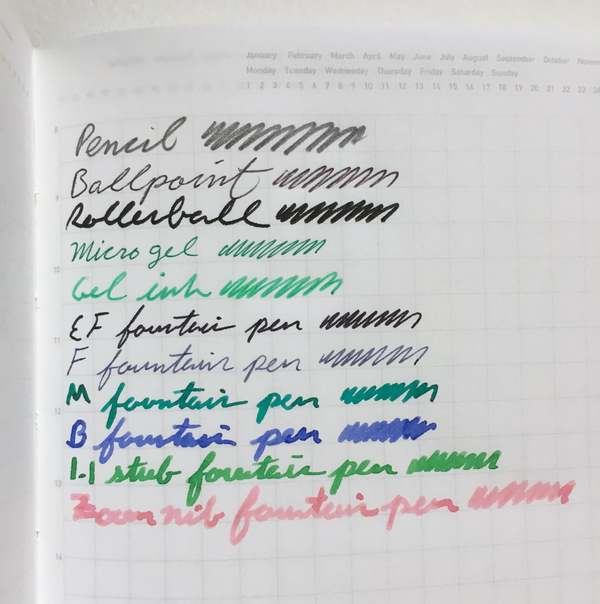 January February March April May June July August September October
Monday Tuesday Wednesday Thursday Friday Saturday Sunday
1 2 3 4 5 6 7 8 9 10 11 12 13 14 15 16 17 18 19 20 21 22 23
Pencil
Ballpoint
Rollerball
Micro gel
Gel ink
EF fountain pen
F fountain pen
M fountain pen
B fountain pen
1.1 stub fountain pen
nib fountain pen
14